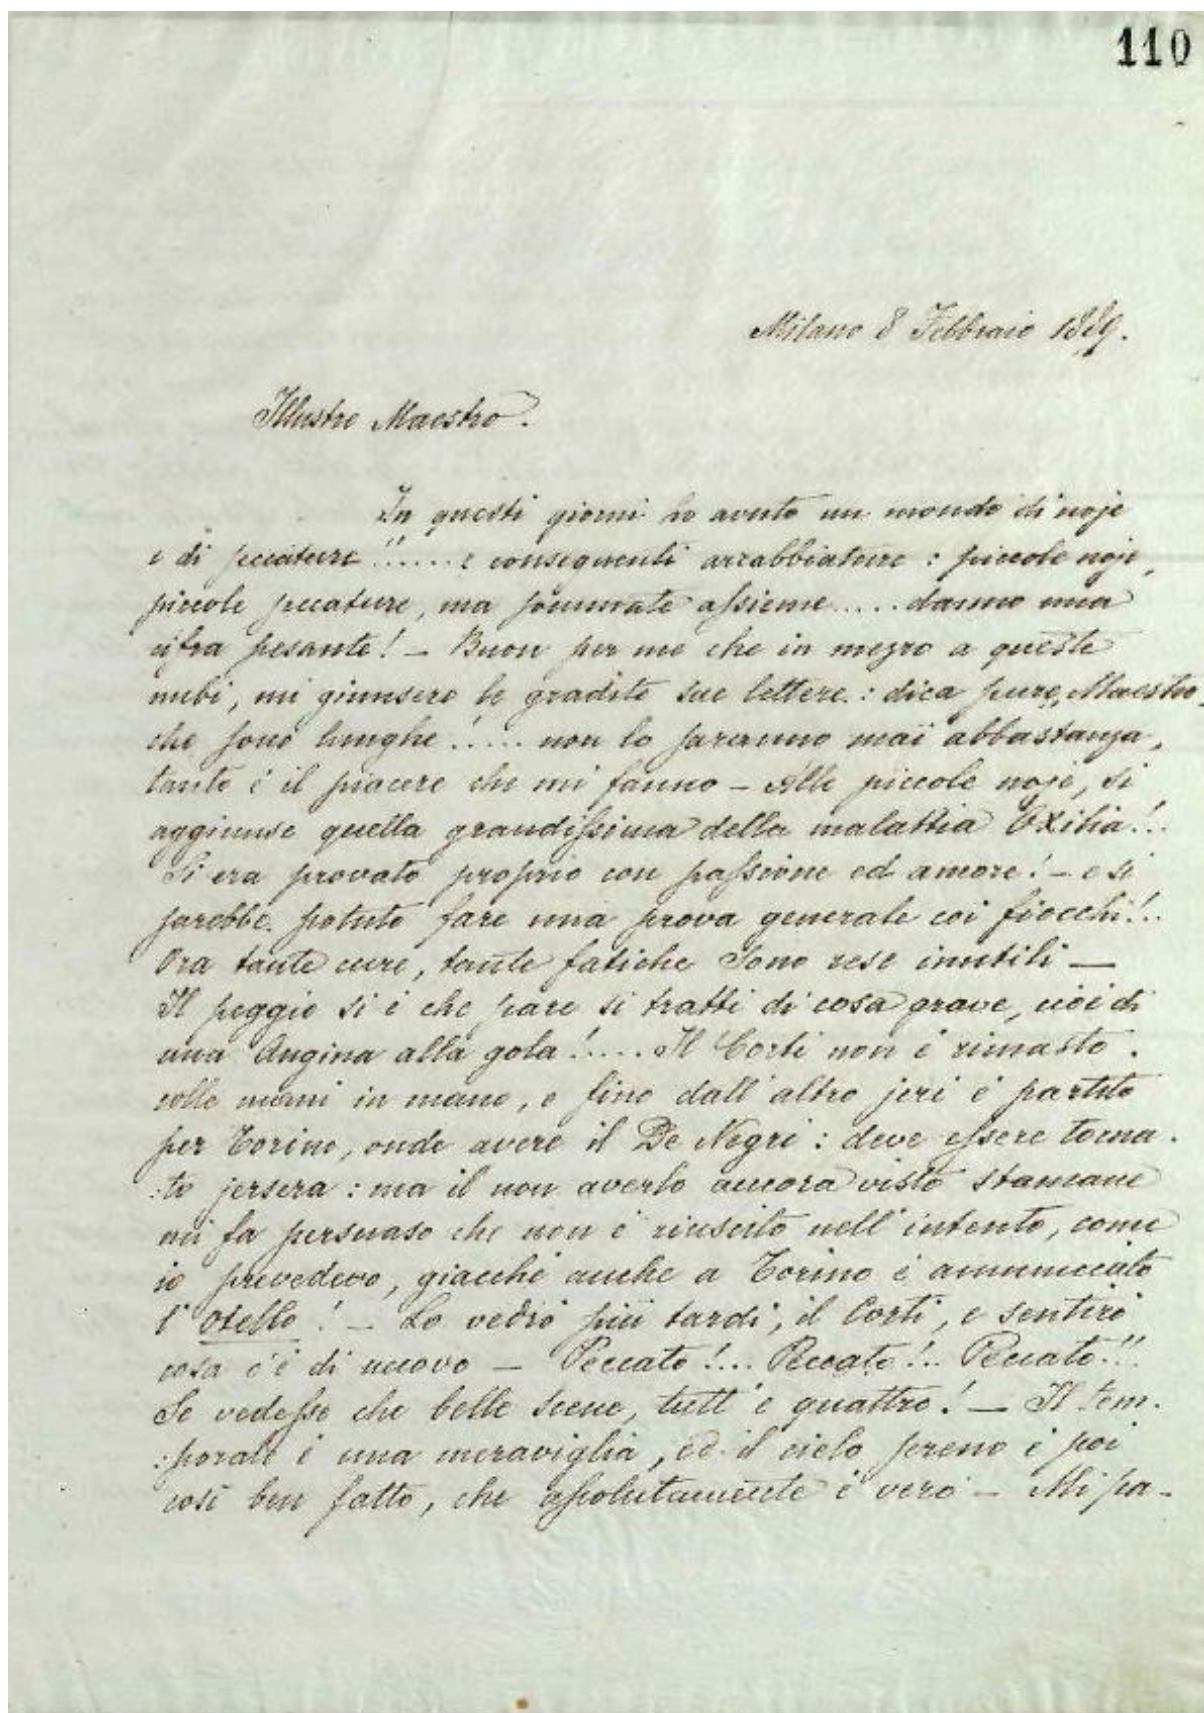 110
Milano 8 Febbraio 1889.
Illustre Maestro.
In questi giorni ho avuto un mondo di noje
e di seccature!!..... e conseguenti arrabbiature: piccole noje,
piccole seccature, ma sommate assieme..... danno una
cifra pesante! — Buon per me che in mezzo a queste
nubi, mi giunsero le gradite sue lettere: dica pure, Maestro,
che sono lunghe!..... non lo saranno mai abbastanza,
tanto è il piacere che mi fanno — Alle piccole noje, si
aggiunse quella grandissima della malattia Oxilia!..
Si era provato proprio con passione ed amore! — e si
sarebbe potuto fare una prova generale coi fiocchi!..
Ora tante cure, tante fatiche sono rese inutili —
Il peggio si è che pare si tratti di cosa grave, cioè di
una Angina alla gola!.... Il Corti non è rimasto
colle mani in mano, e fino dall'altro jeri è partito
per Torino, onde avere il De Negri: deve essere torna-
:to jersera: ma il non averlo ancora visto stamane
mi fa persuaso che non è riuscito nell'intento, come
io prevedevo, giacchè anche a Torino è annunciato
l'Otello! — Lo vedrò più tardi, il Corti, e sentirò
cosa c'è di nuovo — Peccato!... Peccato!.. Peccato!!
Se vedesse che belle scene, tutt'e quattro! — Il tem-
:porale è una meraviglia, ed il cielo sereno è poi
così ben fatto, che assolutamente è vero — Mi pa-